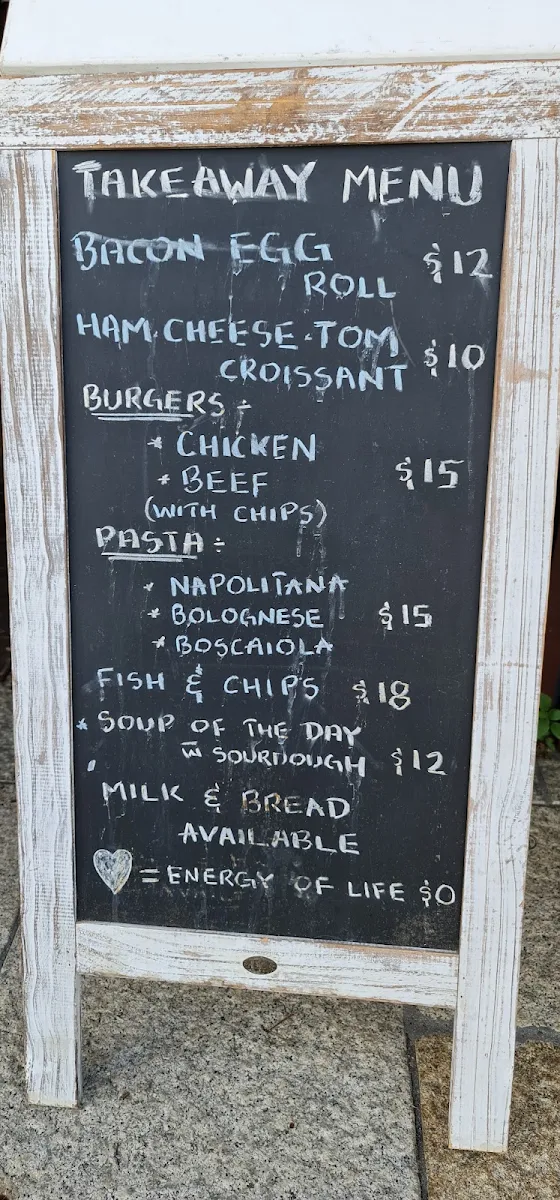 TAKEAWAY MENU
BACON EGG
ROLL $12
HAM.CHEESE.TOM
CROISSANT $10
BURGERS:
* CHICKEN
* BEEF $15
(WITH CHIPS)
PASTA:
* NAPOLITANA
* BOLOGNESE $15
* BOSCAIOLA
FISH & CHIPS $18
* SOUP OF THE DAY
W SOURDOUGH $12
MILK & BREAD
AVAILABLE
♥ = ENERGY OF LIFE $0